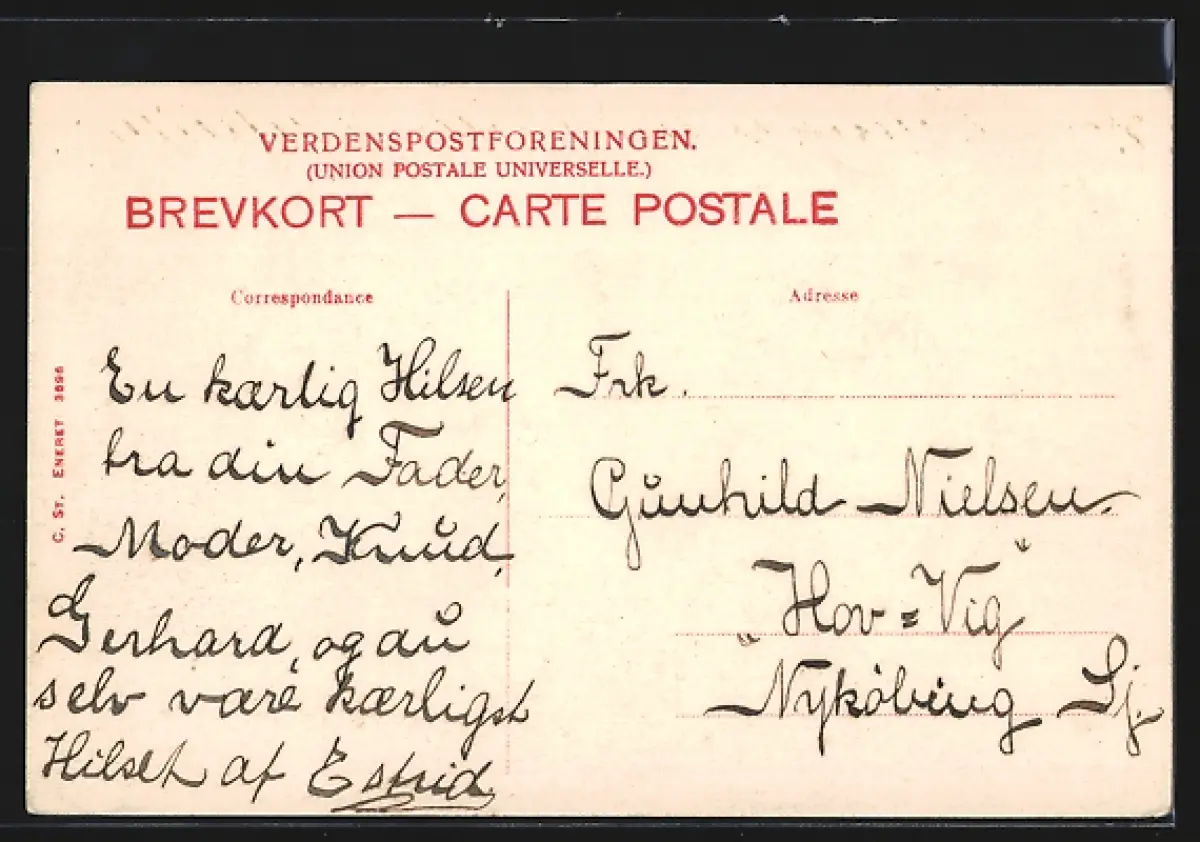 VERDENSPOSTFORENINGEN.
(UNION POSTALE UNIVERSELLE.)
BREVKORT — CARTE POSTALE
Correspondance
En kærlig Hilsen
fra din Fader,
Moder, Knud,
Gerhard, og du
selv være kærligst
Hilset af Estrid
Adresse
Frk.
Gunhild Nielsen.
"Hov=Vig"
Nykøbing Sj.
C. ST. ENERET 3896